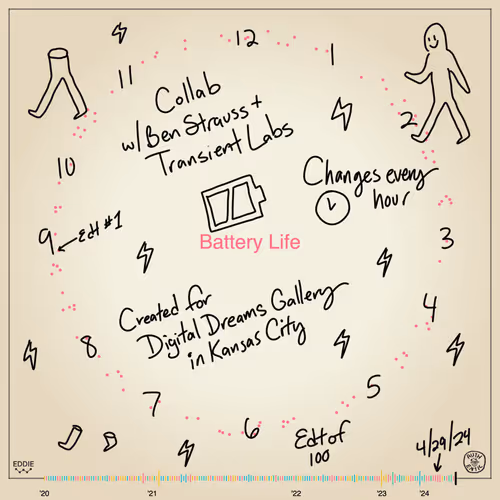 12
11
1
Collab
w/Ben Strauss +
Transient Labs
2
10
Changes every
hour
9
Edt #1
Battery Life
3
Created for
Digital Dreams Gallery
in Kansas City
4
8
5
7
6
Edt of
100
4/29/24
EDDIE
'20
'21
'22
'23
'24